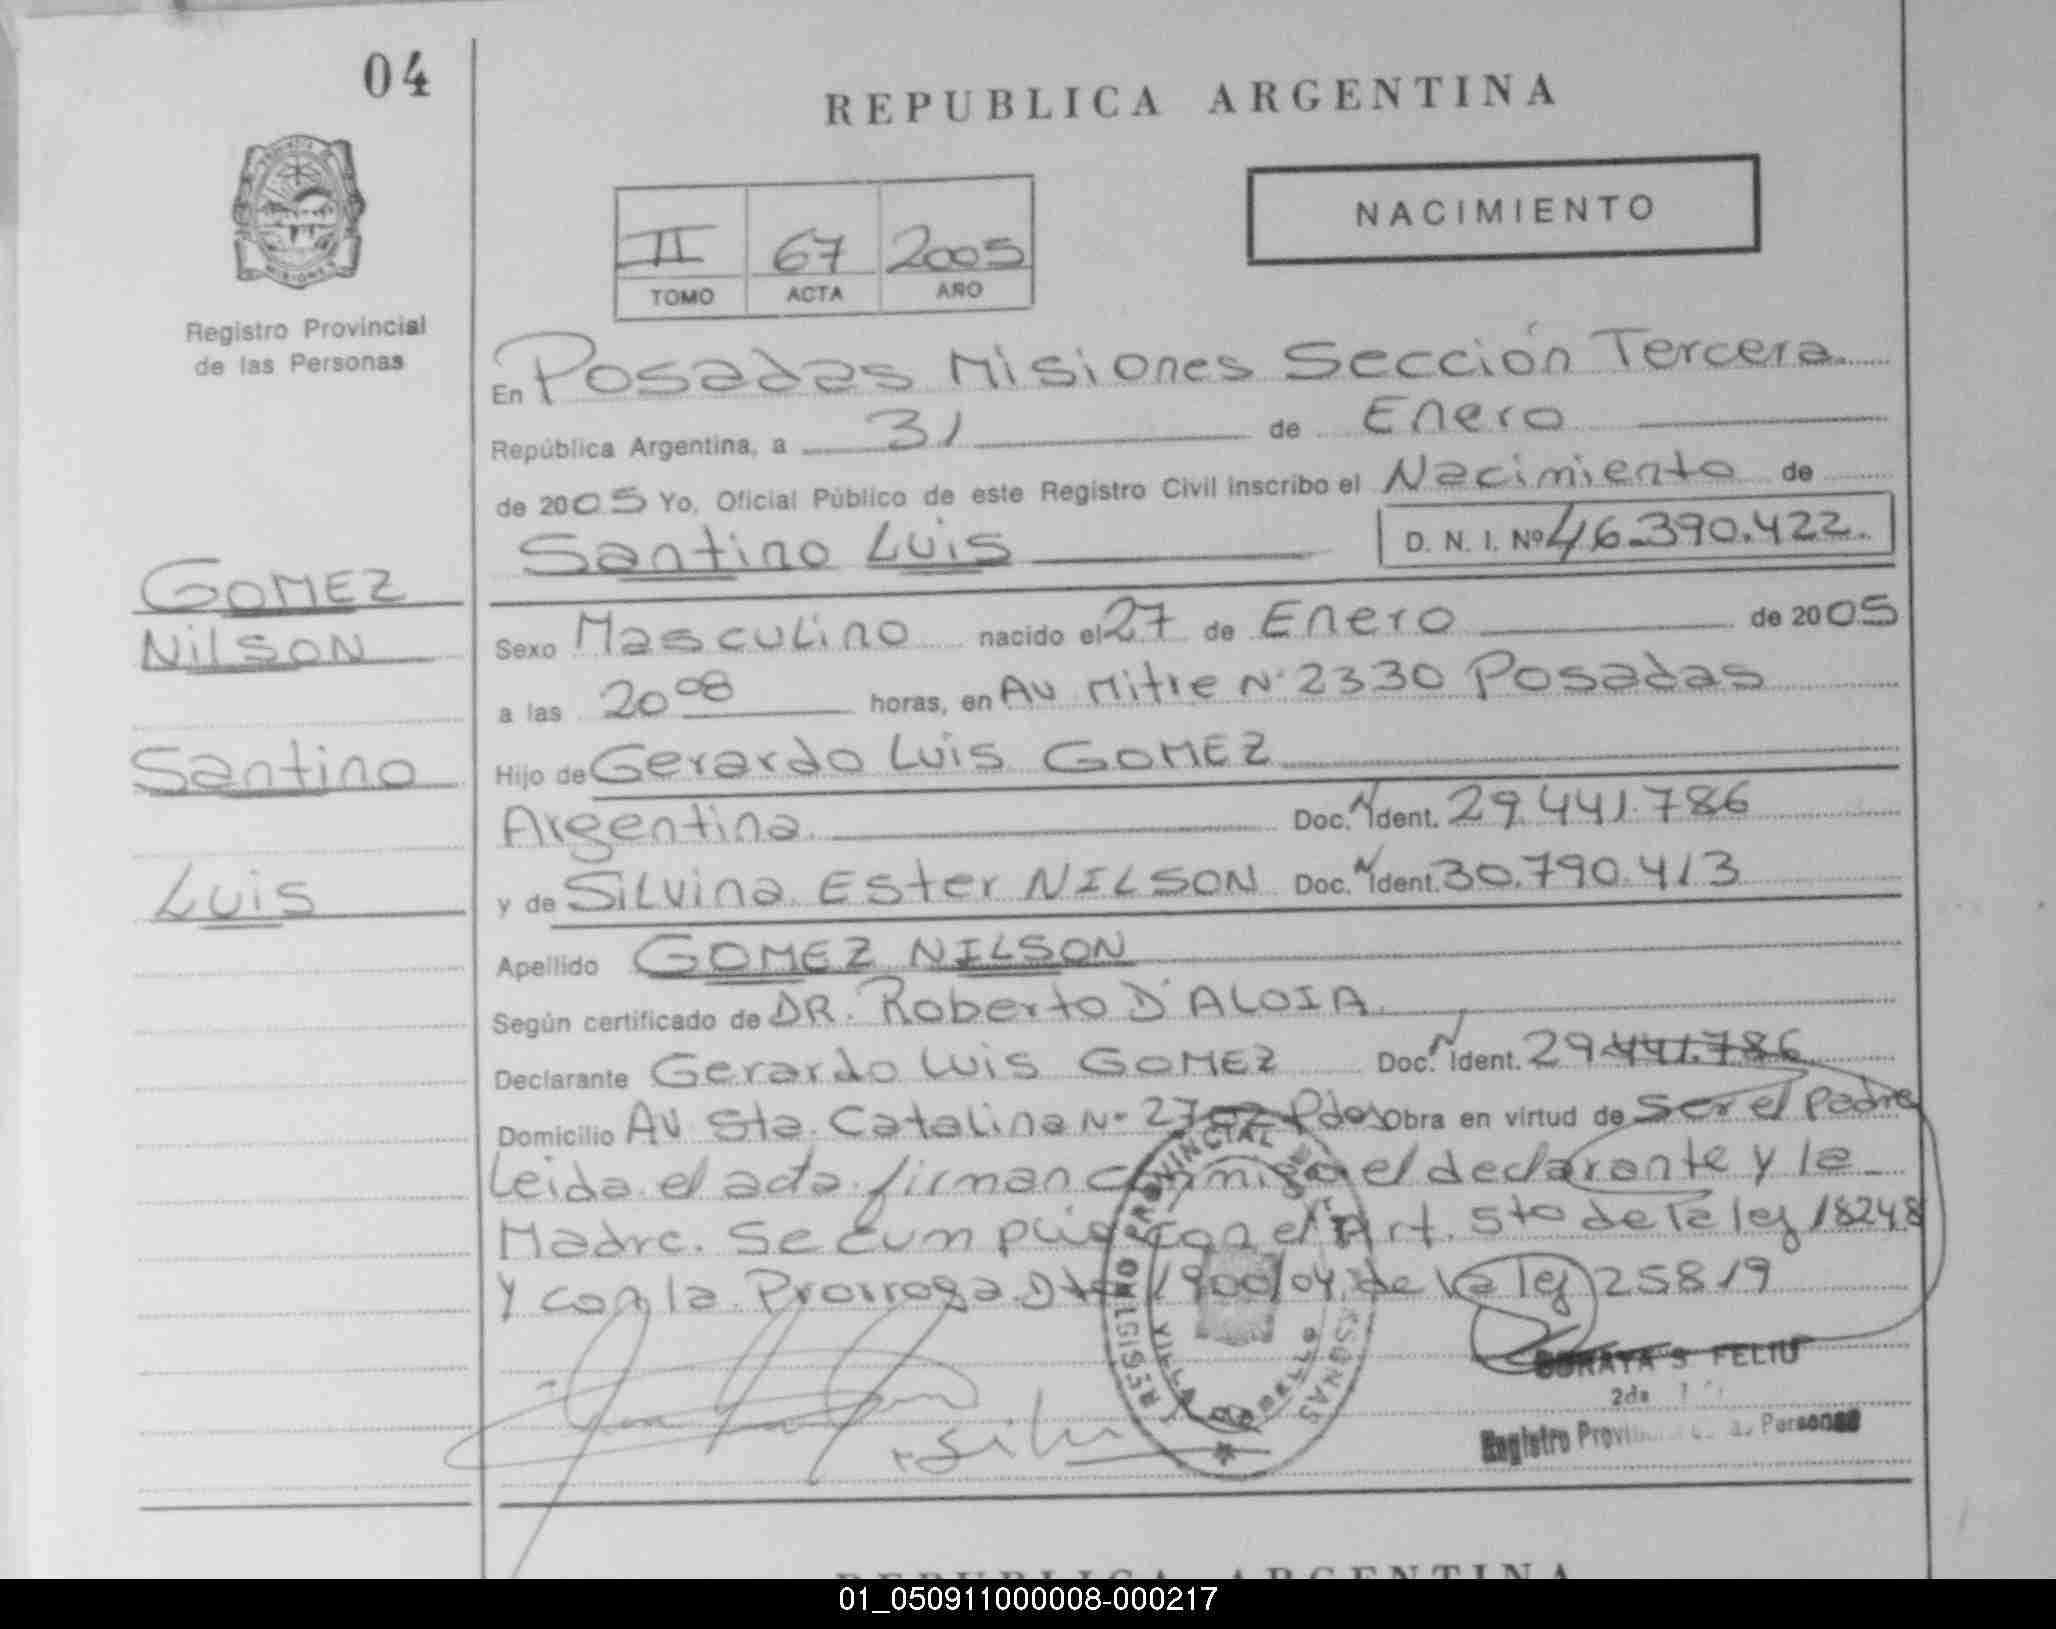 04
REPUBLICA ARGENTINA
NACIMIENTO
II 67 2005
TOMO ACTA AÑO
Registro Provincial
de las Personas
En Posadas Misiones Sección Tercera
República Argentina, a 31 de Enero
de 2005 Yo, Oficial Público de este Registro Civil inscribo el Nacimiento de
Santino Luis D. N. I. Nº 46.390.422.
GOMEZ
NilSON
Santino
Luis
Sexo Masculino nacido el 27 de Enero de 2005
a las 20 08 horas, en Av Mitre N° 2330 Posadas
Hijo de Gerardo Luis GOMEZ
Argentina Doc. N Ident. 29.441.786
y de Silvina Ester NILSON Doc. N Ident. 30.790.413
Apellido GOMEZ NILSON
Según certificado de DR. Roberto D'ALOIA
Declarante Gerardo Luis GOMEZ Doc. N Ident. 29.441.786
Domicilio AV Sta. Catalina N° Pdas Obra en virtud de ser el Padre
Leida el acta firman conmigo el declarante y la
Madre. Se cumplió con el Art. 5to de la ley 18248
Y con la Prorroga Dto 1900/04 de la ley 25819
REGISTRO PROVINCIAL DE
VILLA
SORAYA S FELIU
2da
Registro Personas
REPUBLICA ARGENTINA
01_050911000008-000217